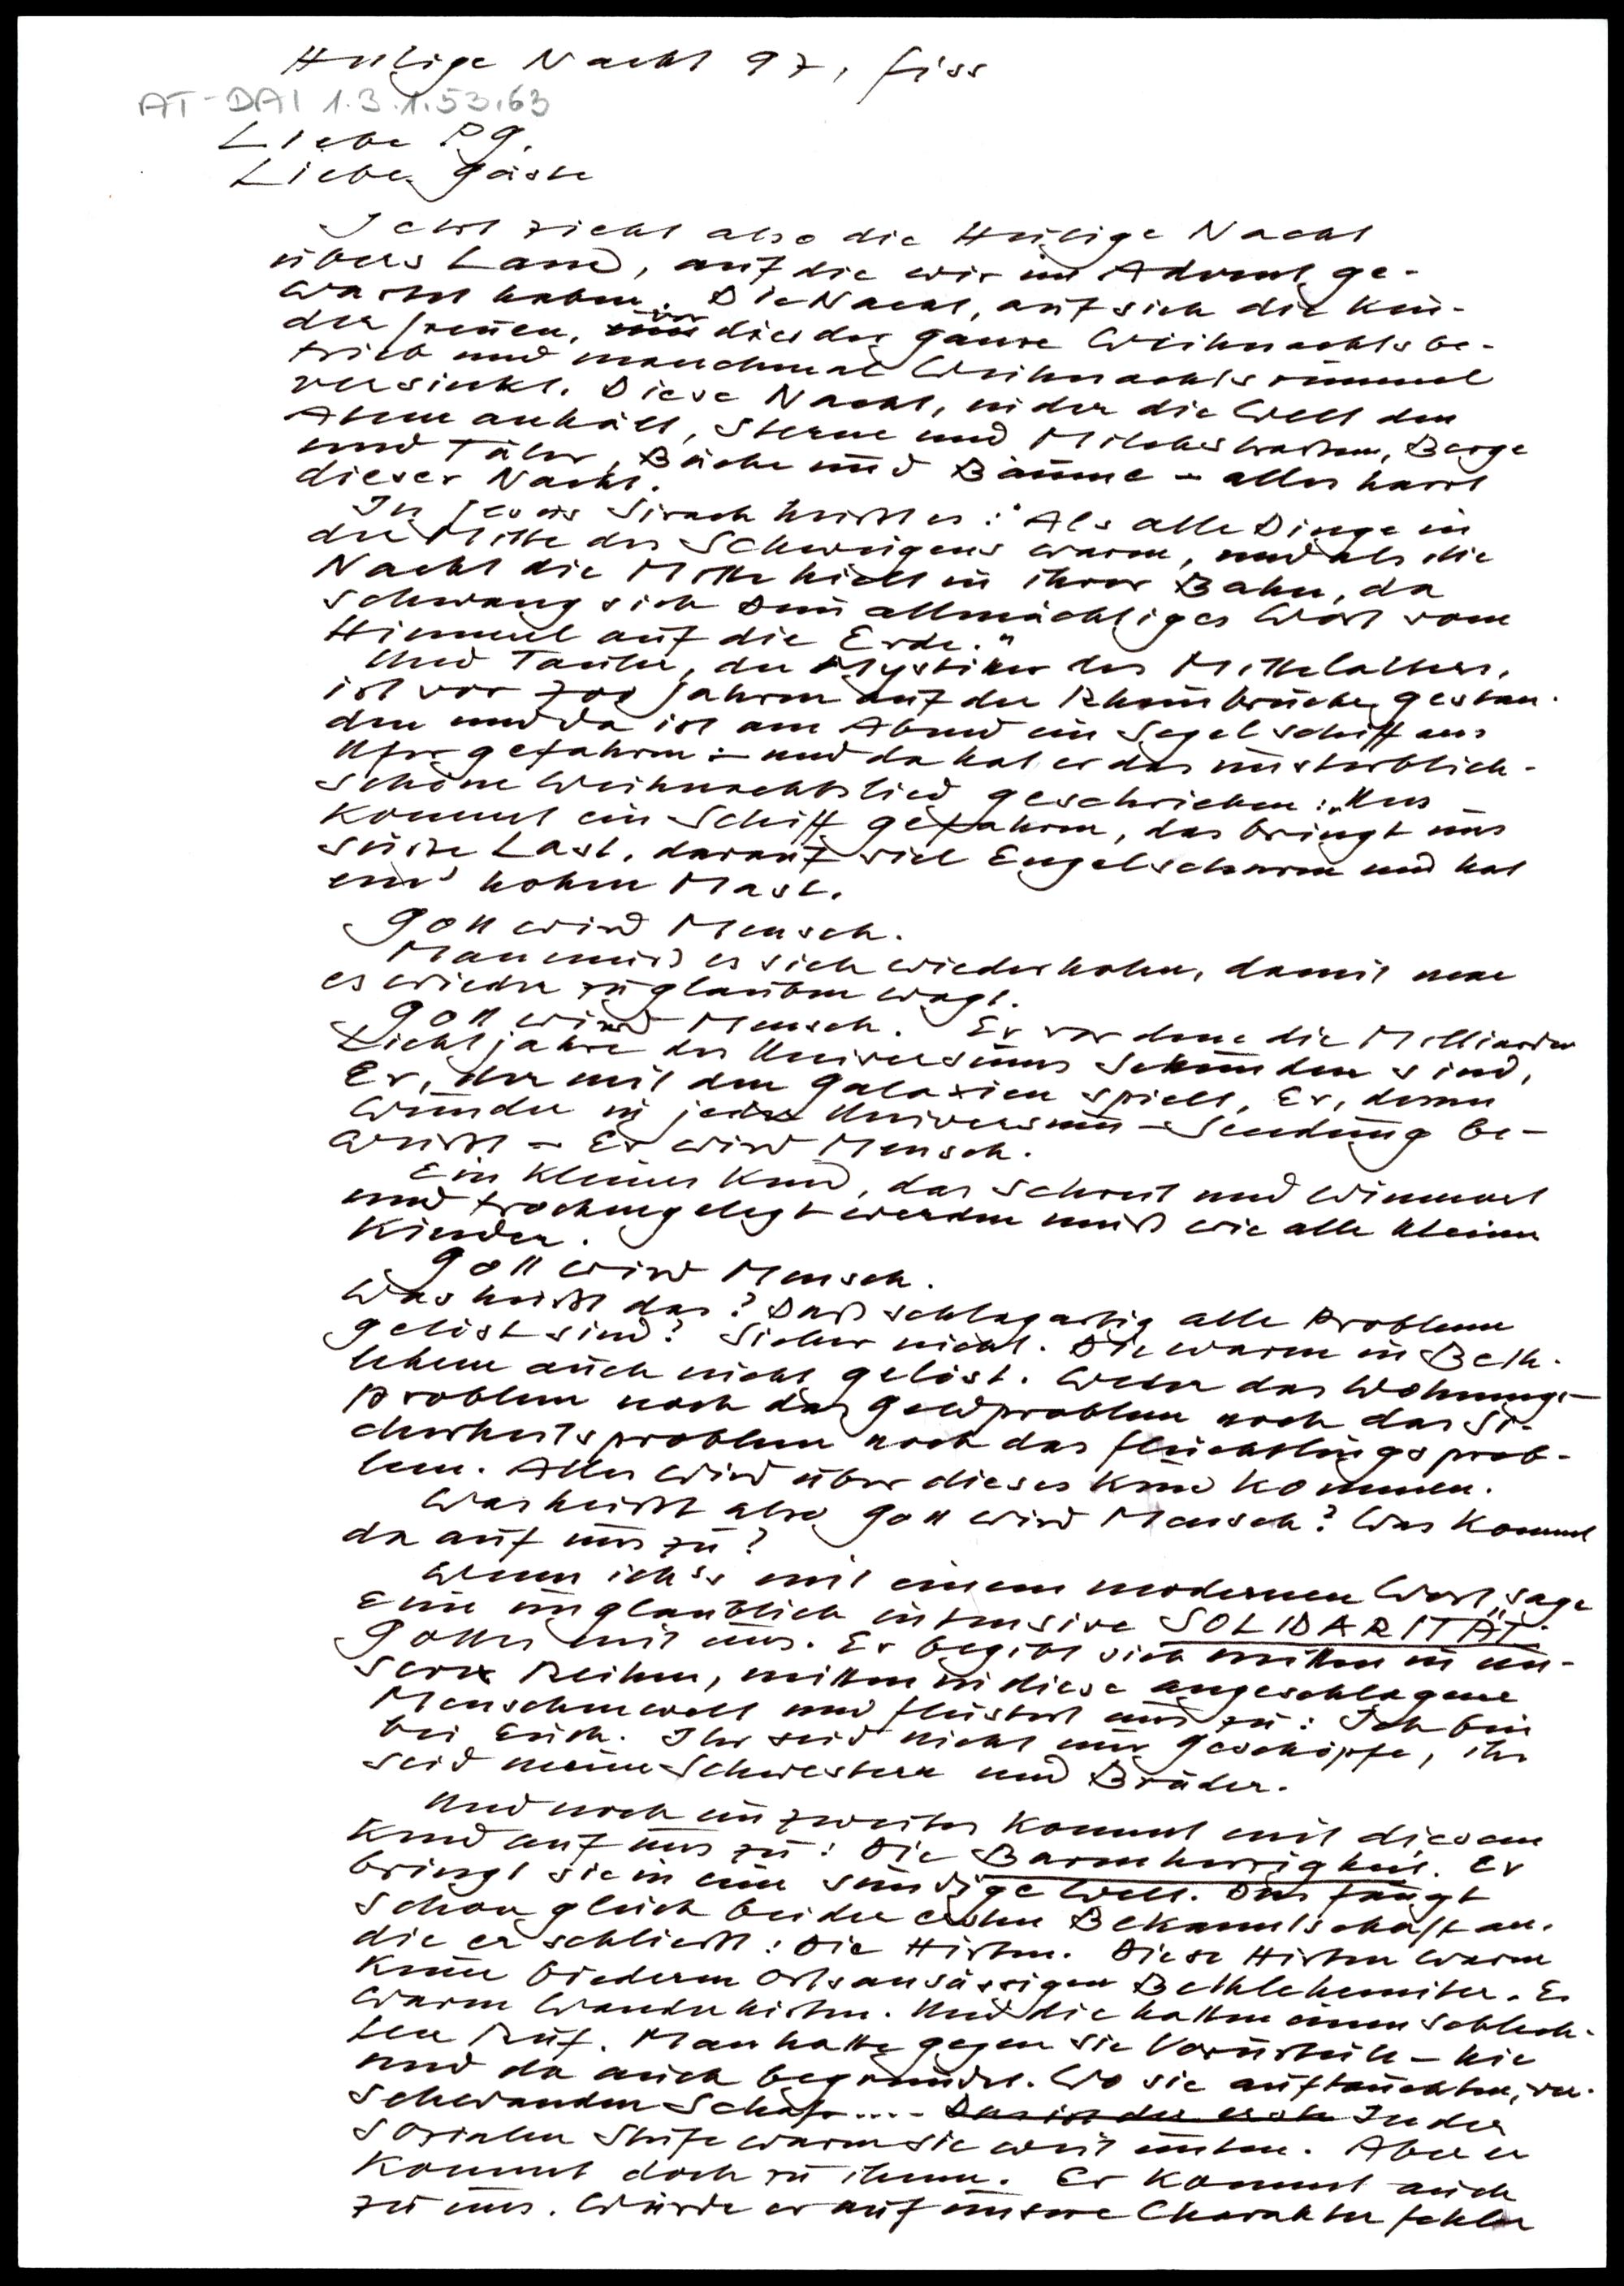 Heilige Nacht 97, Fiss
AT-DAI 1.3.1.53.63
Liebe PG.
Liebe Gäste
Jetzt zieht also die Heilige Nacht
übers Land, auf die wir im Advent ge-
wartet haben. Die Nacht, auf sich die Kin-
der freuen, vor dies der ganze Weihnachtsbe-
trieb und manchmal Weihnachtsrummel
versinkt. Diese Nacht, in der die Welt den
Atem anhält, Sterne und Milchstraßen, Berge
und Täler, Bäche und Bäume – alles harrt
dieser Nacht.
In Jesus Sirach heißt es: "Als alle Dinge in
der Mitte des Schweigens waren, und als die
Nacht die Mitte hielt in ihrer Bahn, da
schwang sich Dein allmächtiges Wort vom
Himmel auf die Erde."
Und Tauler, der Mystiker des Mittelalters,
ist vor 700 Jahren auf der Rheinbrücke gestan-
den und da ist am Abend ein Segelschiff ans
Ufer gefahren – und da hat er das unsterblich-
schöne Weihnachtslied geschrieben: "Uns
kommt ein Schiff gefahren, das bringt uns
süße Last, darauf viel Engelscharen und hat
ein' hohen Mast.
Gott wird Mensch.
Man muß es sich wiederholen, damit man
es wieder zu glauben wagt.
Gott wird Mensch. Er vor dem die Milliarden
Lichtjahre des Universums Sekunden sind,
Er, der mit den Galaxien spielt, Er, dessen
Wunder in jeder Universum-Sendung be-
weist – Er wird Mensch.
Ein kleines Kind, das schreit und wimmert
und trockengelegt werden muß wie alle kleinen
Kinder.
Gott wird Mensch.
Was heißt das? Daß schlagartig alle Probleme
gelöst sind? Sicher nicht. Die waren in Beth-
lehem auch nicht gelöst. Weder das Wohnungs-
problem noch das Geldproblem noch das Si-
cherheitsproblem noch das Flüchtlingsprob-
lem. Alles wird über dieses Kind kommen.
Was heißt also Gott wird Mensch? Was kommt
da auf uns zu?
Wenn ich's mit einem modernen Wort sage
Eine unglaublich intensive "SOLIDARITÄT"
Gottes mit uns. Er begibt sich mitten in un-
sere Reihen, mitten in diese angeschlagene
Menschenwelt und flüstert uns zu: Ich bin
bei Euch. Ihr seid nicht nur Geschöpfe, ihr
seid meine Schwestern und Brüder.
Und noch ein zweites kommt mit diesem
Kind auf uns zu: Die Barmherzigkeit. Er
bringt sie in eine sündige Welt. Das fängt
schon gleich bei der ersten Bekanntschaft an,
die er schließt: Die Hirten. Diese Hirten waren
keine biederen ortsansässigen Bethlehemiter. Es
waren Wanderhirten. Und die hatten einen schlech-
ten Ruf. Man hatte gegen sie Vorurteile – hie
und da auch begründet. Wo sie auftauchten, ver-
schwanden Schafe.... Das ist der erste In der
sozialen Stufe waren sie weit unten. Aber er
kommt doch zu ihnen. Er kommt auch
zu uns. Würde er auf unsere Charakterfehler